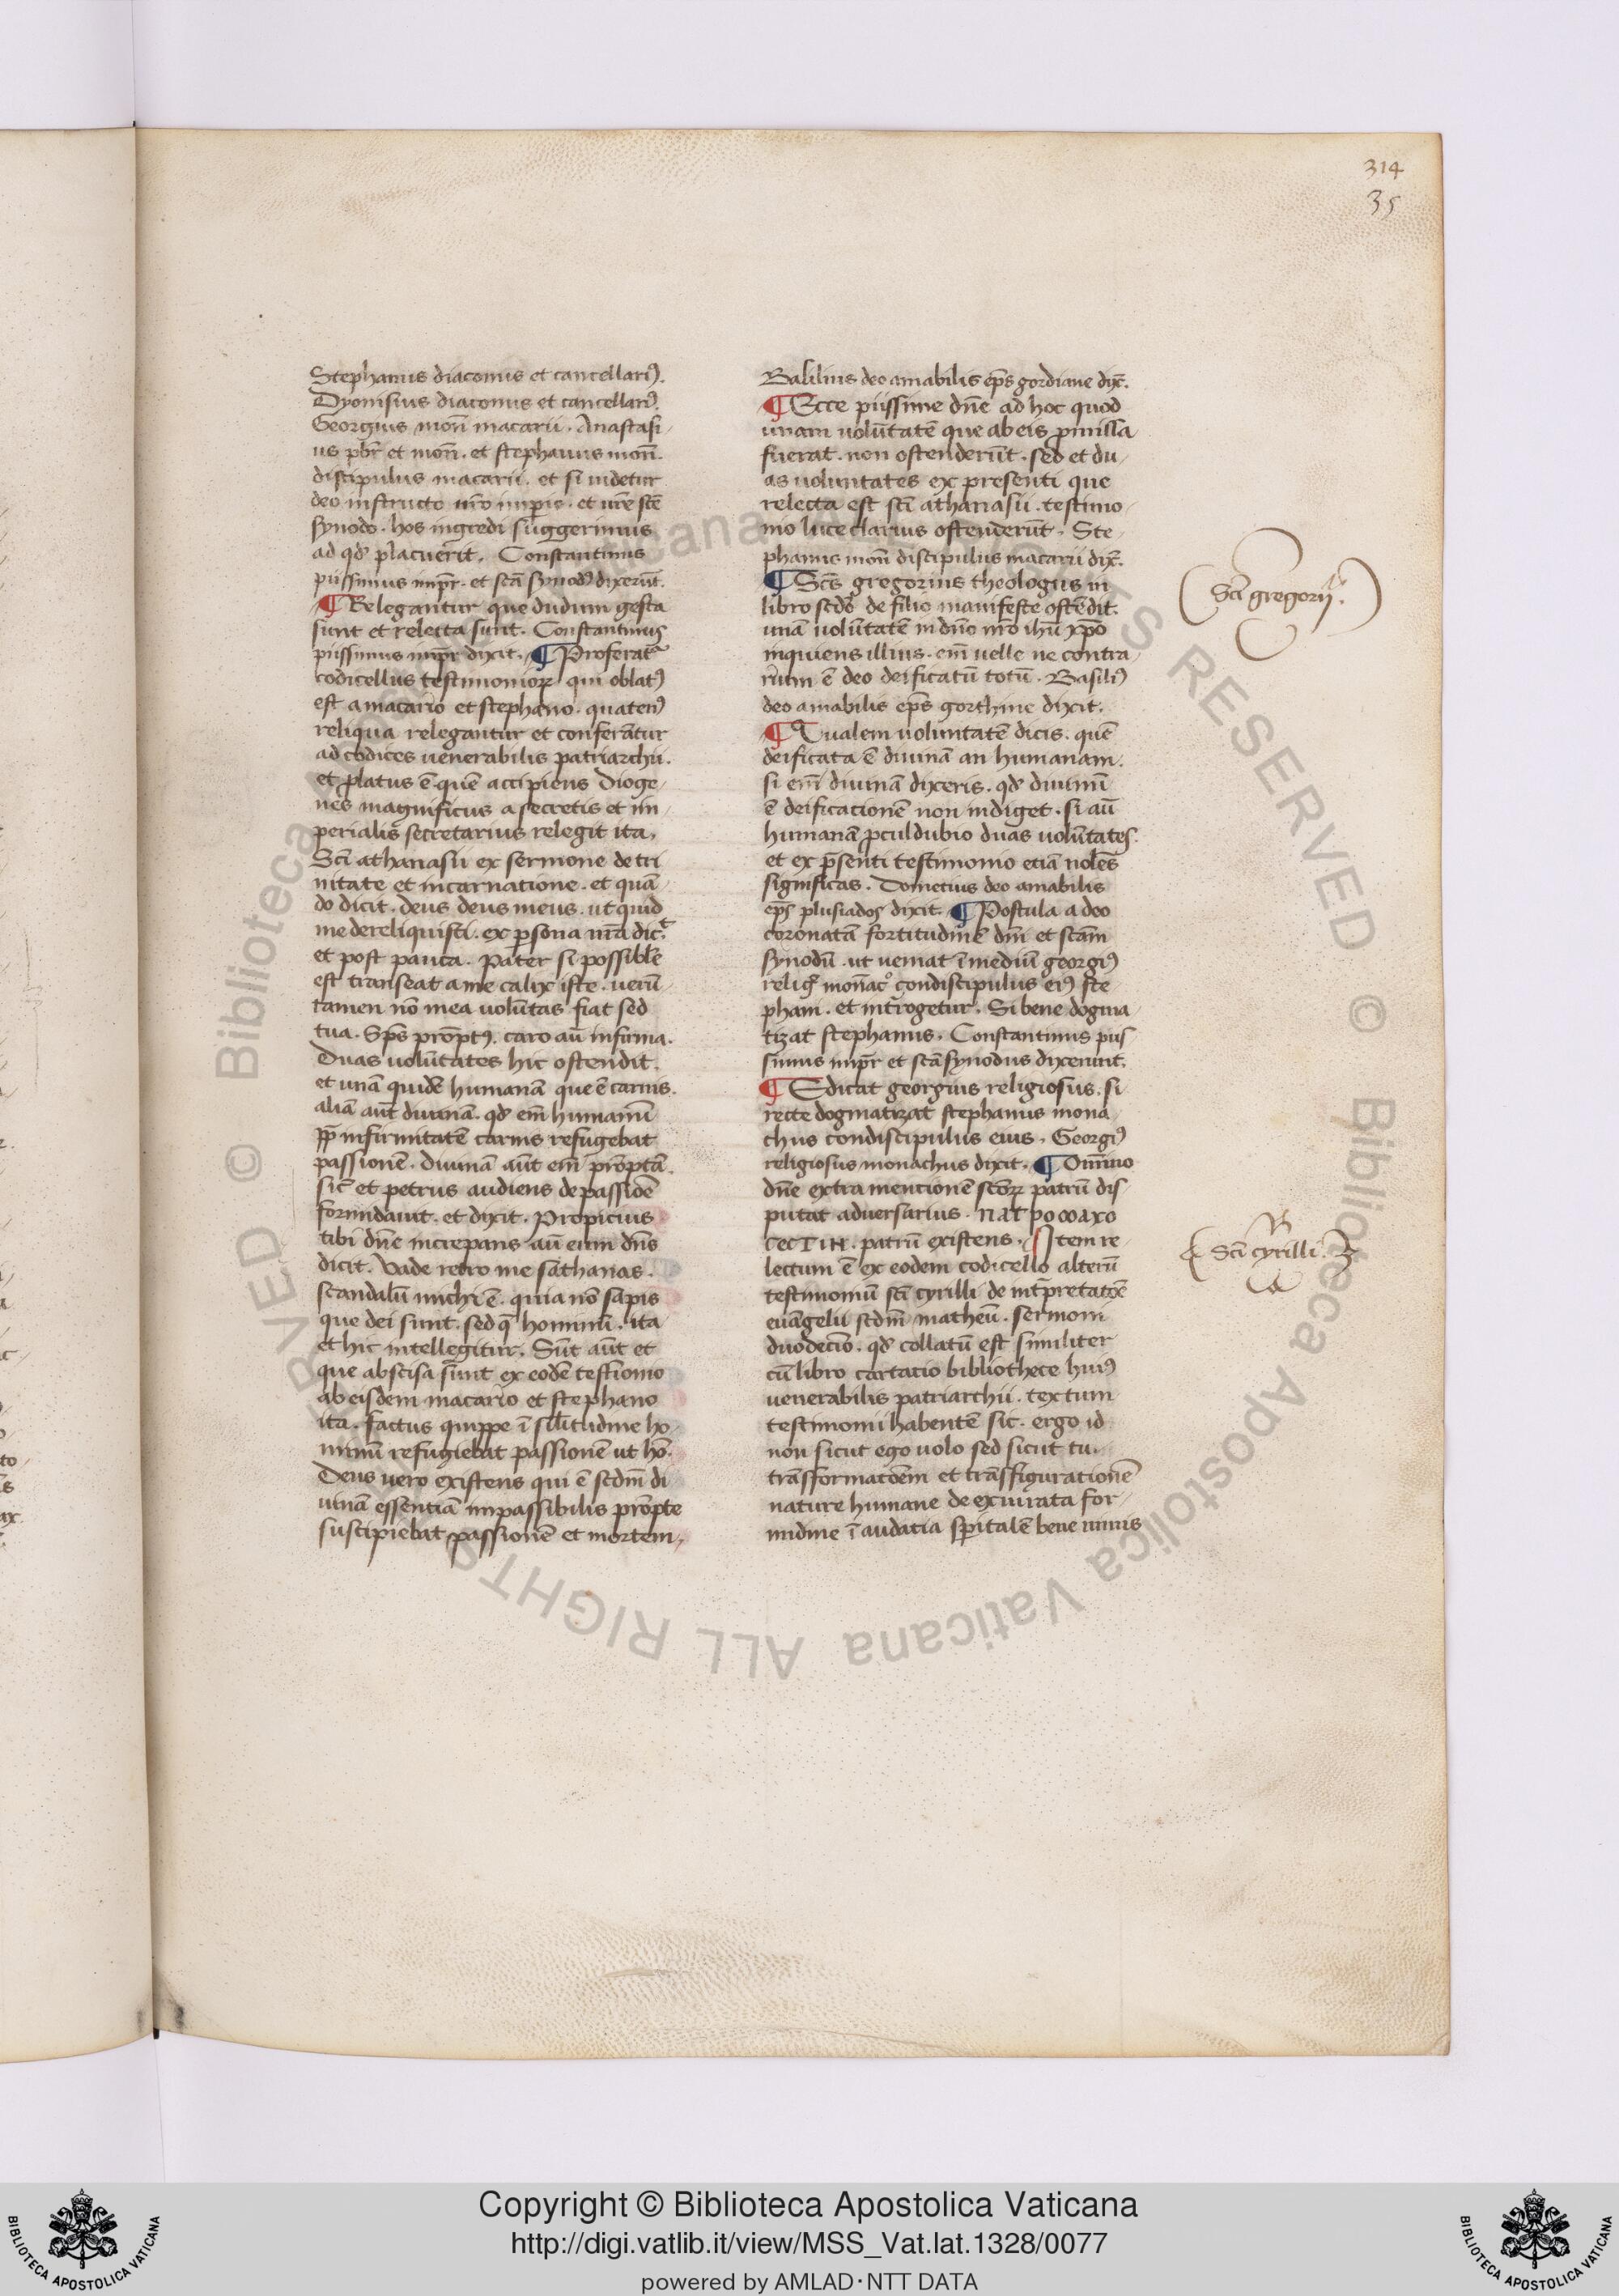 314
35
Stephanus diaconus et cancellariꝰ.
Dyonisius diaconus et cancellariꝰ.
Georgius mon̄ macarii. Anastasi
us pbr̄ et mon̄. et stephanus mon̄.
discipulus macarii. et si uidetur
deo instructo ur̄o imperio. et ur̄e sce
synodo. hos ingredi suggerimus
ad qd̓ placuerit. Constantinus
piissimus impr̄. et scā synodꝰ dixerūt.
¶ Relegantur que dudum gesta
sunt et relecta sunt. Constantinus
piissimus impr̄ dixit. ¶ Proferat᷑
codicellus testimoniorꝝ qui oblatꝰ
est a macario et stephano. quatenꝰ
reliqua relegantur et conferātur
ad codices uenerabilis patriarchii.
et ꝓlatus ē. quē accipiens Dioge
nes magnificus a secretis et im
perialis secretarius relegit ita.
Scī athanasii ex sermone de tri
nitate et incarnatione. et quā
do dicit. deus deus meus. ut quid
me dereliquisti. ex ꝑsona nr̄a dic̄.
et post pauca. Pater si possibile
est transeat a me calix iste. uerū
tamen nō mea uolūtas fiat sed
tua. Sp̄s promptꝰ. caro aū infirma.
Duas uolūtates hic ostendit.
et unā quidē humanā que ē carnis.
aliā aūt diuinā. qd̓ em̄ humanū
ꝓp̄ infirmitatē carnis refugebat
passionē. diuinā aūt em̄ promptā.
sic̄ et petrus audiens de passiōe
formidauit. et dixit. Propicius
tibi dn̄e increpans aū eum dn̄s
dicit. Vade retro me sathanas.
scandalū michi ē. quia nō sapis
que dei sunt. sed q̄ hominū. ita
et hic intellegitur. Sūt aūt et
que abscisa sunt ex eodē testiōio
ab eisdem macario et stephano
ita. factus quippe ī silītudine ho
minū refugiebat passionē ut hō.
Deus uero existens qui ē scdm̄ di
uinā essentiā impassibilis prōpte
suscipiebat passionē et mortem.
Basilius deo amabilis ep̄s gordiane dix̄.
¶ Ecce piissime dn̄e ad hoc quod
unam uolūtatē que ab eis ꝓmissa
fuerat. non ostenderūt. sed et du
as uoluntates ex presenti que
relecta est scī athanasii. testimo
nio luce clarius ostenderūt. Ste
phanus mon̄ discipulus macarii dix̄.
¶ Scs̄ gregorius theologus in
libro scdo de filio manifeste ostēdit.
unā uolūtatē in dn̄o nr̄o ihū xp̄o
inquiens illius. em̄ uelle ne contra
rium ē deo deificatū totū. Basiliꝰ
deo amabilis ep̄s gorthine dixit.
¶ Qualem uoluntatē dicis. quē
deificata ē diuinā an humanam.
si em̄ diuinā dixeris. qd̓ diuinū
ē deificationē non indiget. si aū
humanā ꝓculdubio duas uolūtates.
et ex p̄senti testimonio etiā nolēs
significas. Dometius deo amabilis
ep̄s plusiados dixit. ¶ Postula a deo
coronatā fortitudinē dn̄i et scām
synodū. ut ueniat ī mediū georgiꝰ
religꝰ monac̄ condiscipulus eiꝰ ste
phani. et int̄rogetur. Si bene dogma
tizat stephanus. Constantinus piis
simus impr̄ et scā synodus dixerunt.
¶ Edicat georgius religiosus. si
recte dogmatizat stephanus mona
chus condiscipulus eius. Georgiꝰ
religiosus monachus dixit. ¶ Omīno
dn̄e extra mencionē scōrꝝ patrū dis
putat aduersarius. πατρομαχο
CECTIN. patrū existens. Item re
lectum ē ex eodem codicello alterū
testimoniū scī cyrilli de int̄pretatōe
euāgelii scdm̄ matheū. sermoni
duodecīo. qd̓ collatū est similiter
cū libro cartacio bibliothece huiꝰ
uenerabilis patriarchii. textum
testimonii habentē sic. ergo id
non sicut ego uolo sed sicut tu.
trāsformatōem et trāsfigurationē
nature humane de exuirata for
midine ī audatia sp̄italē bene unius
Scī gregorij.
Scī cyrilli.
Copyright © Biblioteca Apostolica Vaticana
http://digi.vatlib.it/view/MSS_Vat.lat.1328/0077
powered by AMLAD·NTT DATA
BIBLIOTECA APOSTOLICA VATICANA
BIBLIOTECA APOSTOLICA VATICANA
© Biblioteca Apostolica Vaticana ALL RIGHTS RESERVED © Biblioteca Apostolica Vaticana ALL RIGHTS RESERVED